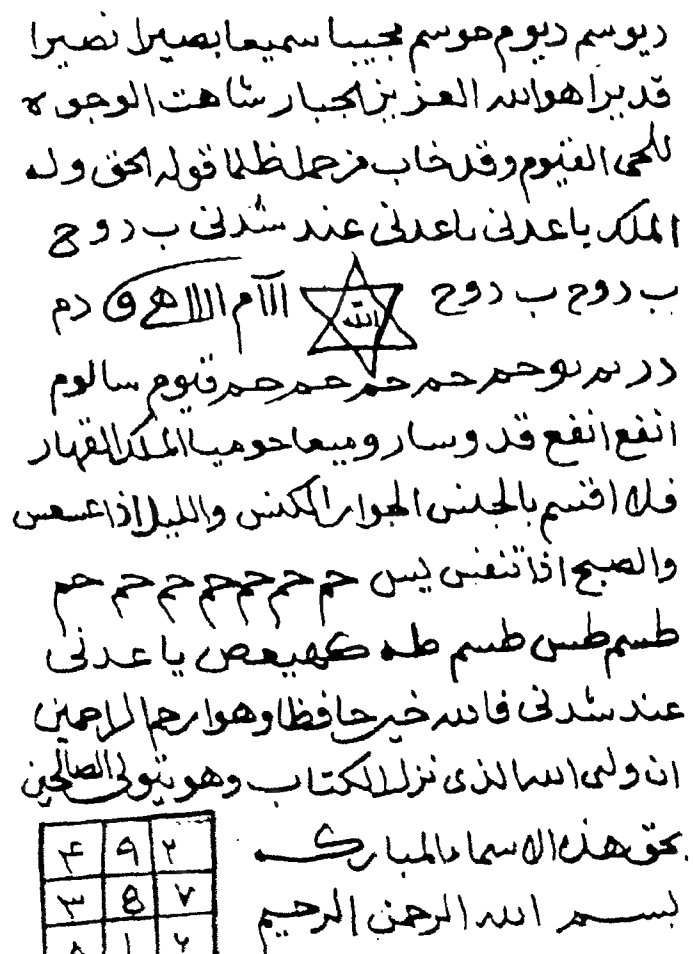 ديوسم ديوم حوسم مجيبا سميعا بصيرا نصيرا
قديرا هو الله العزيز الجبار شاهت الوجوه
للحي القيوم وقد خاب من حمل ظلما قوله الحق وله
الملك ياعدتى ياعدتى عند شدتى ب د و ح
ب د و ح ب د و ح الله
حم حم حم حم حم قيوم سالوم
انفع انفع قدوسا
الملك القهار
فلا اقسم بالخنس الجوار الكنس والليل اذا عسعس
والصبح اذا تنفس يس حم حم حم حم حم حم حم
طسم طس طسم طه كهيعص يا عدتى
عند شدتى فالله خير حافظا وهو ارحم الراحمين
ان ولى الله الذى نزل الكتاب وهو يتولى الصالحين
بحق هذه الاسماء المباركه
بسم الله الرحمن الرحيم
٢ ٩ ۴
٧ 8 ٣